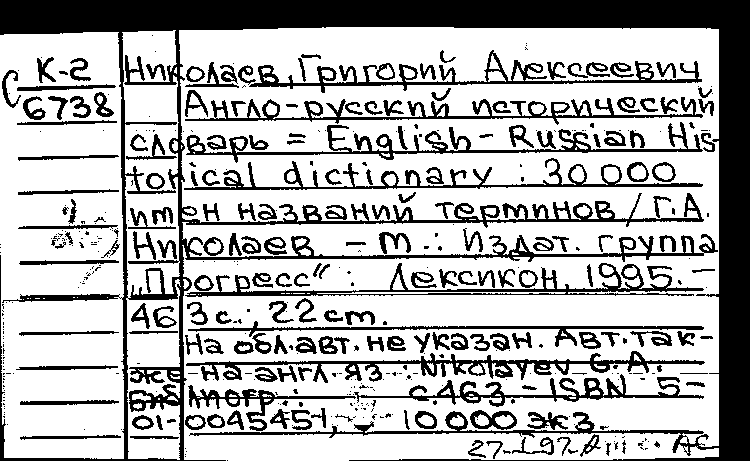 К-2
С 6738
Николаев, Григорий Алексеевич
Англо-русский исторический
словарь = English-Russian His-
torical dictionary : 30 000
имен названий терминов / Г.А.
Николаев. - М.: Издат. группа
„Прогресс“ : Лексикон, 1995. -
463 с.; 22 cm.
На обл. авт. не указан. Авт. так-
же на англ. яз.: Nikolayev G. A.
Библиогр.: с.463. - ISBN 5-
01-0045454, - 10 000 экз.